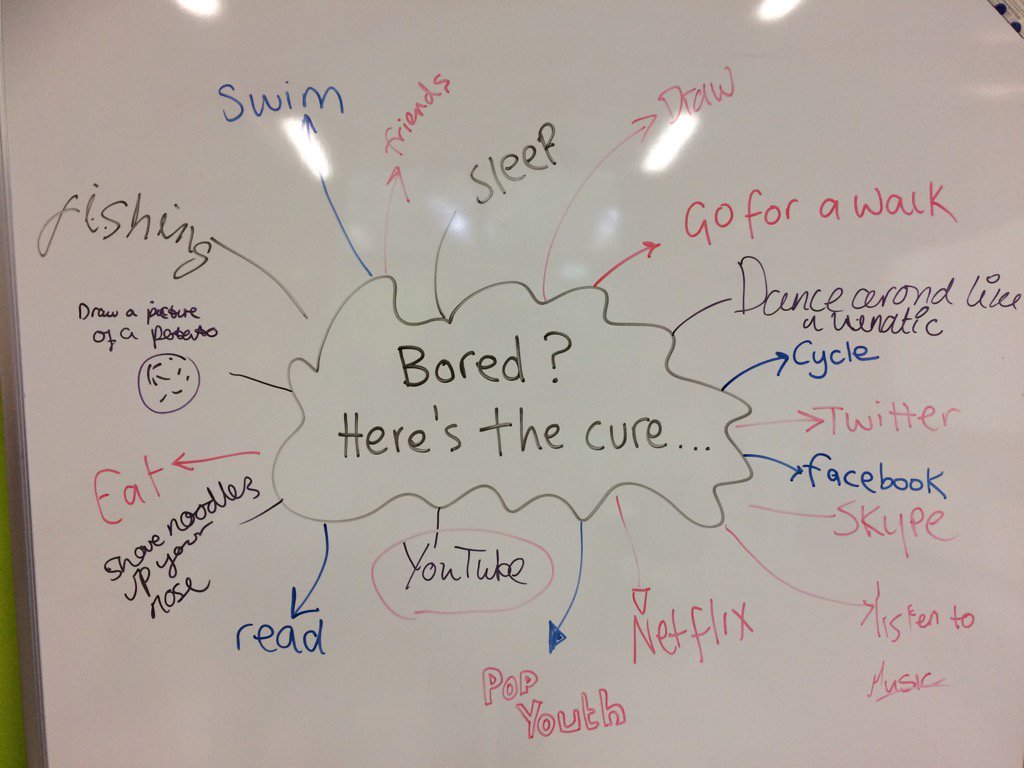 Swim
friends
sleep
Draw
fishing
Go for a walk
Dance arond like
a lunatic
Draw a picture
of a potato
Bored?
Here's the cure...
Cycle
Twitter
facebook
Skype
Eat
Shove noodles
up your
nose
YouTube
read
Netflix
listen to
Music
Pop
Youth